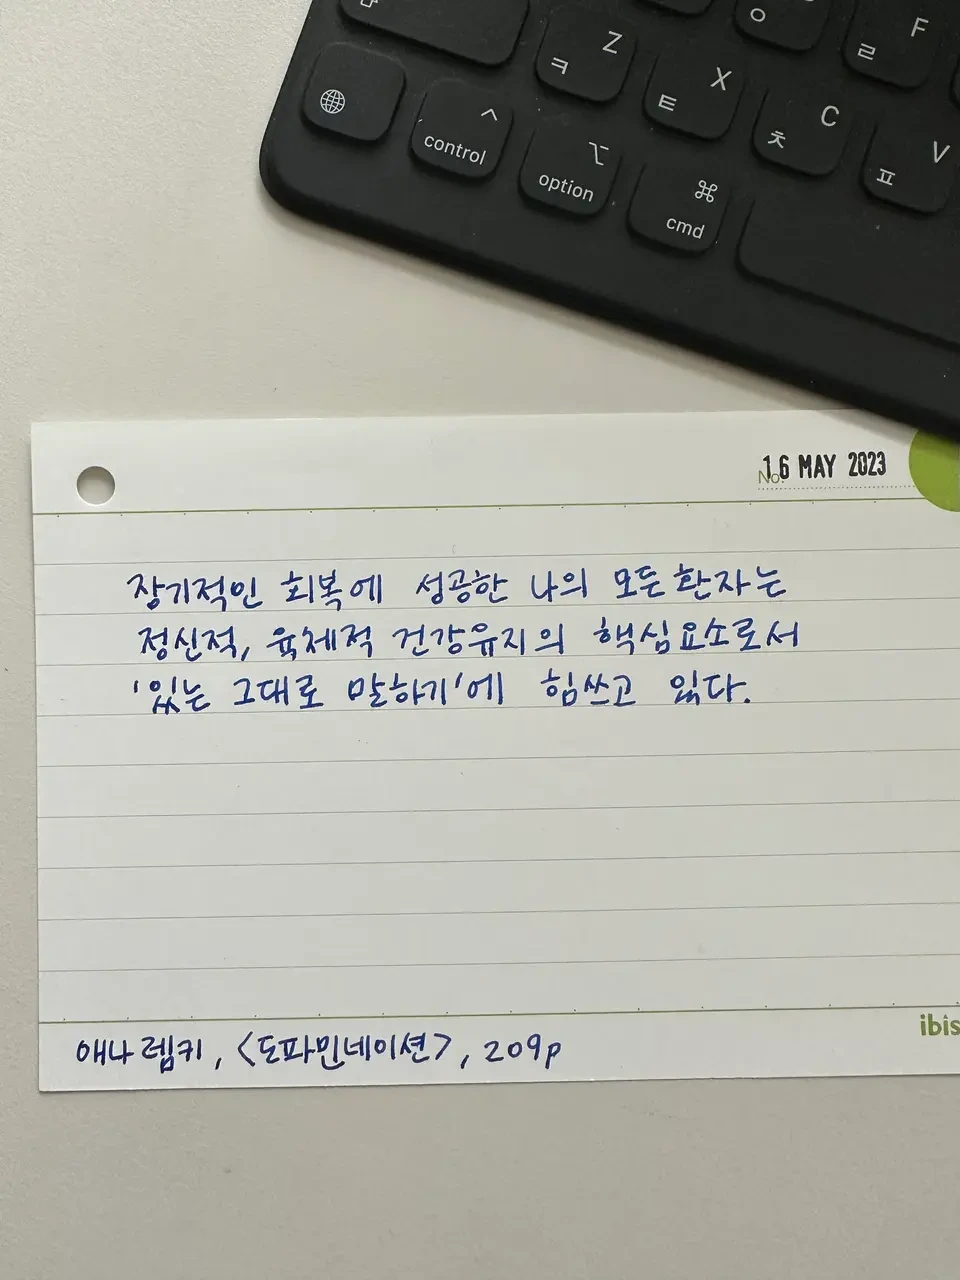 Z
ㅋ
X
ㅌ
C
ㅊ
V
ㅍ
F
ㄹ
ㅇ
control
option
cmd
No.
16 MAY 2023
장기적인 회복에 성공한 나의 모든 환자는
정신적, 육체적 건강유지의 핵심요소로서
'있는 그대로 말하기'에 힘쓰고 있다.
ibis
애나 렘키, <도파민네이션>, 209p